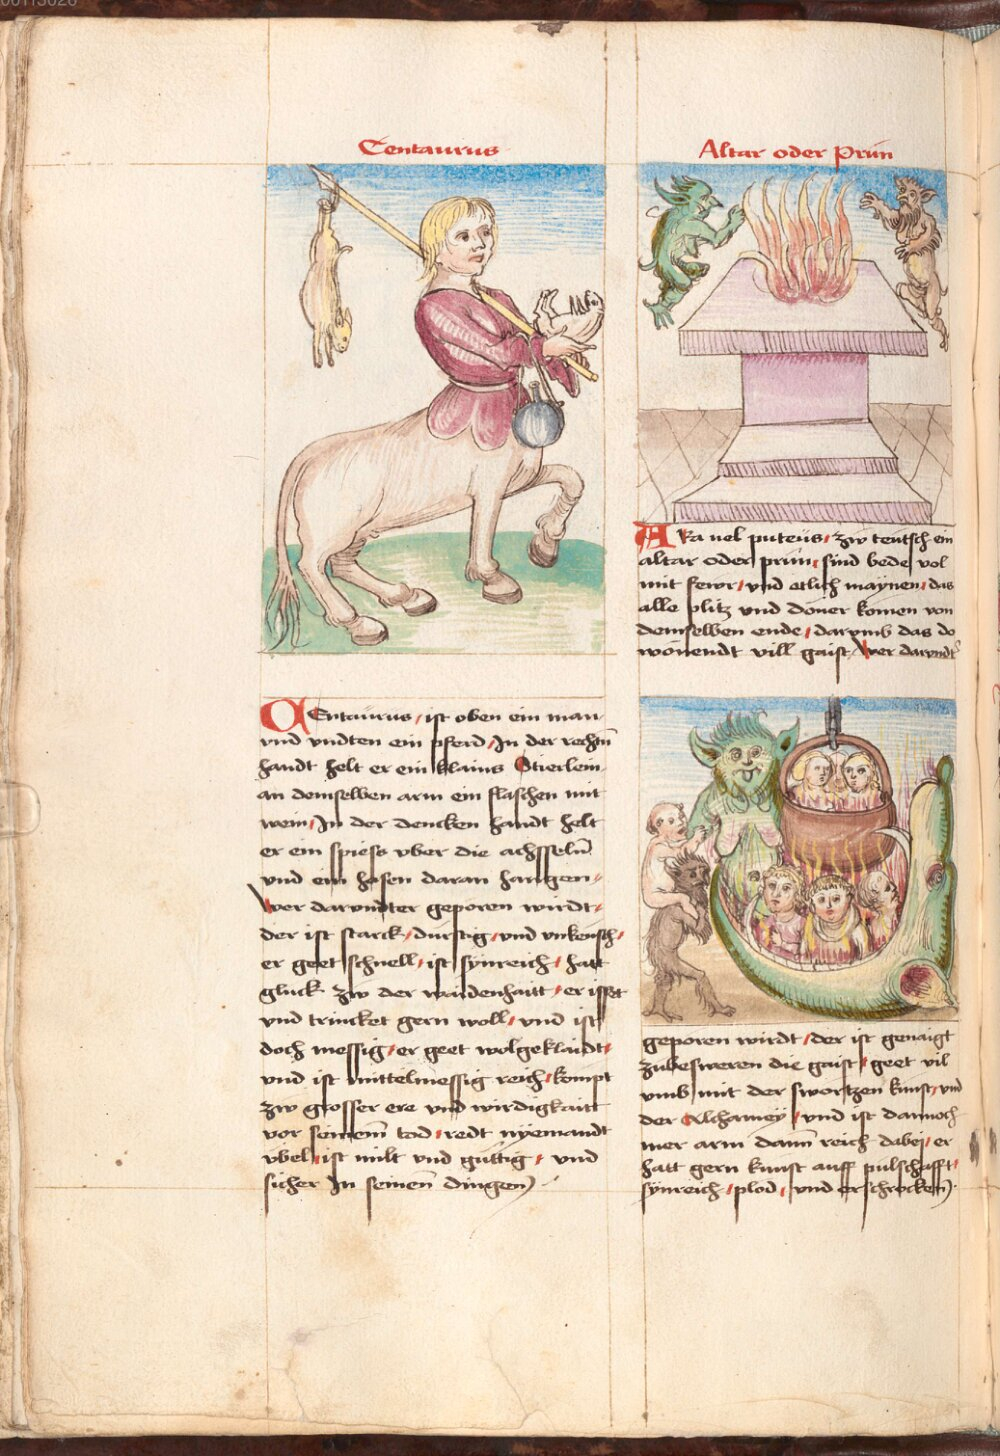 Centaurus
CEntaurus / ist oben ein man /
vnd vndten ein pferd / In der rechtñ
handt helt er ein klains Stierlein /
an demselben arm ein flaschen mit
wein / In der dencken handt helt
er ein spiess vber die achsselñ
vnd ein hasen daran hangen /
wer darvndter geporen wirdt /
der ist starck / durstig / vnd vnkeusch /
er geet schnell / ist synreich / hatt
gluck zw der waidenhaitt / er isset
vnd trincket gern woll / vnd ist
doch messig / er geet wolgeklaidt /
vnd ist mittelmessig reich / kompt
zw grosser ere vnd wirdigkaitt
vor seinem̃ tod / redt nyemandt
vbel / ist milt vnd guttig / vnd
sicher In seinen dingen)
Altar oder Prün
ARa uel puteüs / zw teutsch ein
altar oder prün / sind bede vol
mit fewr / vnd etlich maynen / das
alle plitz vnd doner komen von
demselben ende / darvmb das do
wonendt vill gaist / wer darvndt̾
geporen wirdt / der ist genaigt
zubesweren die gaist / geet vil
vmb mit der swortzen kunst / vnd
der Alchamey / vnd ist dannoch
mer arm dann reich dabei / er
hatt gern kunst auff pulschafft /
synreich / plod / vnd erschrocken)